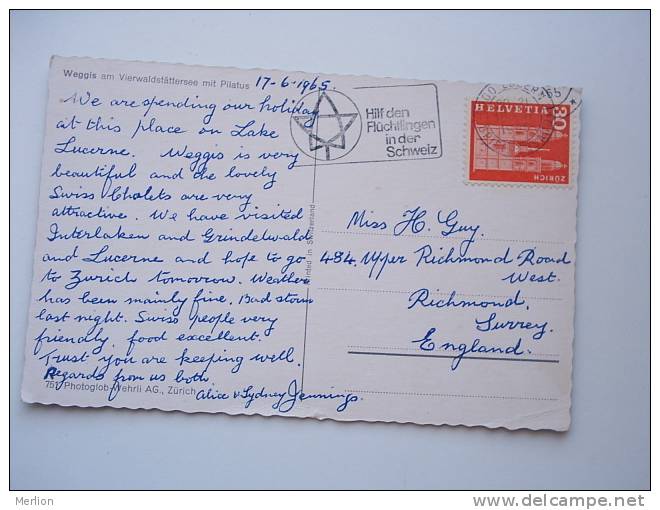 Weggis am Vierwaldstättersee mit Pilatus
17-6-1965.
We are spending our holiday
at this place on Lake
Lucerne. Weggis is very
beautiful and the lovely
Swiss Chalets are very
attractive. We have visited
Interlaken and Grindelwald
and Lucerne and hope to go
to Zurich tomorrow. Weather
has been mainly fine. Bad storm
last night. Swiss people very
friendly, food excellent.
Trust you are keeping well.
Regards from us both
Alice & Sydney Jennings.
751 Photoglob-Wehrli AG., Zürich
Printed in Switzerland
Hilf den
Flüchtlingen
in der
Schweiz
HELVETIA
30
ZÜRICH
Miss H. Guy.
484. Upper Richmond Road
West.
Richmond.
Surrey.
England.
Merlion
www.delcampe.net